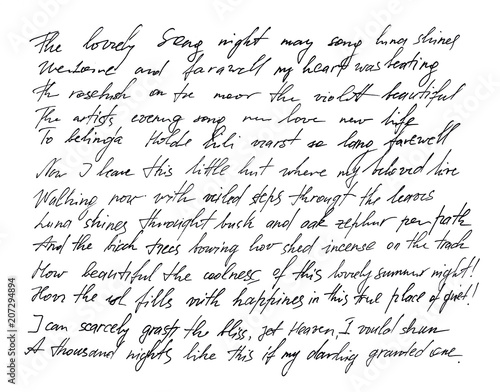 The lovely Song night may song luna shines
Welcome and farawell my heart was beating
Th rosebush on the moor the violett beautiful
The artists evening song new love new life
To belinda Holde Lili warst so lang farewell
Now I leave this little hut where my beloved live
Walking now with veiled steps througt the leaves
Luna shines throught bush and oak zephur per path
And the birch trees bowing low shed incense on the track
How beautiful the coolness of this lovely summer night!
How the soul fills with happiness in this true place of quiet!
I can scarcely grasp the bliss, jet Heaven, I would shun
A thousand nights like this if my darling granted one.
Adobe Stock | #207294894